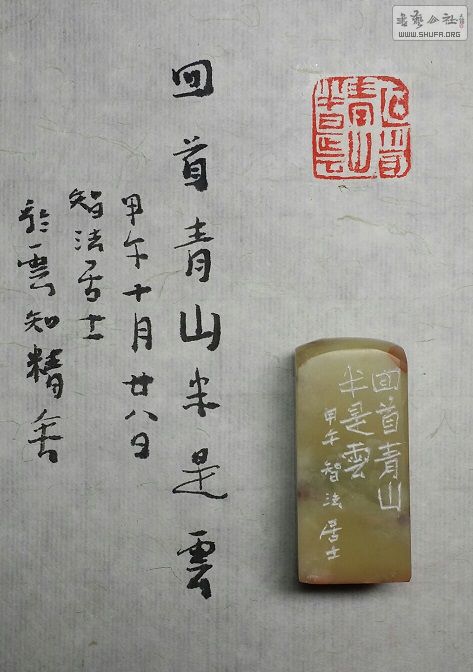 書藝公社
WWW.SHUFA.ORG
回首
青山
半是雲
回首青山半是雲
甲午十月廿八日
智法居士
於雲知精舍
回首青山
半是雲
甲午 智法居士